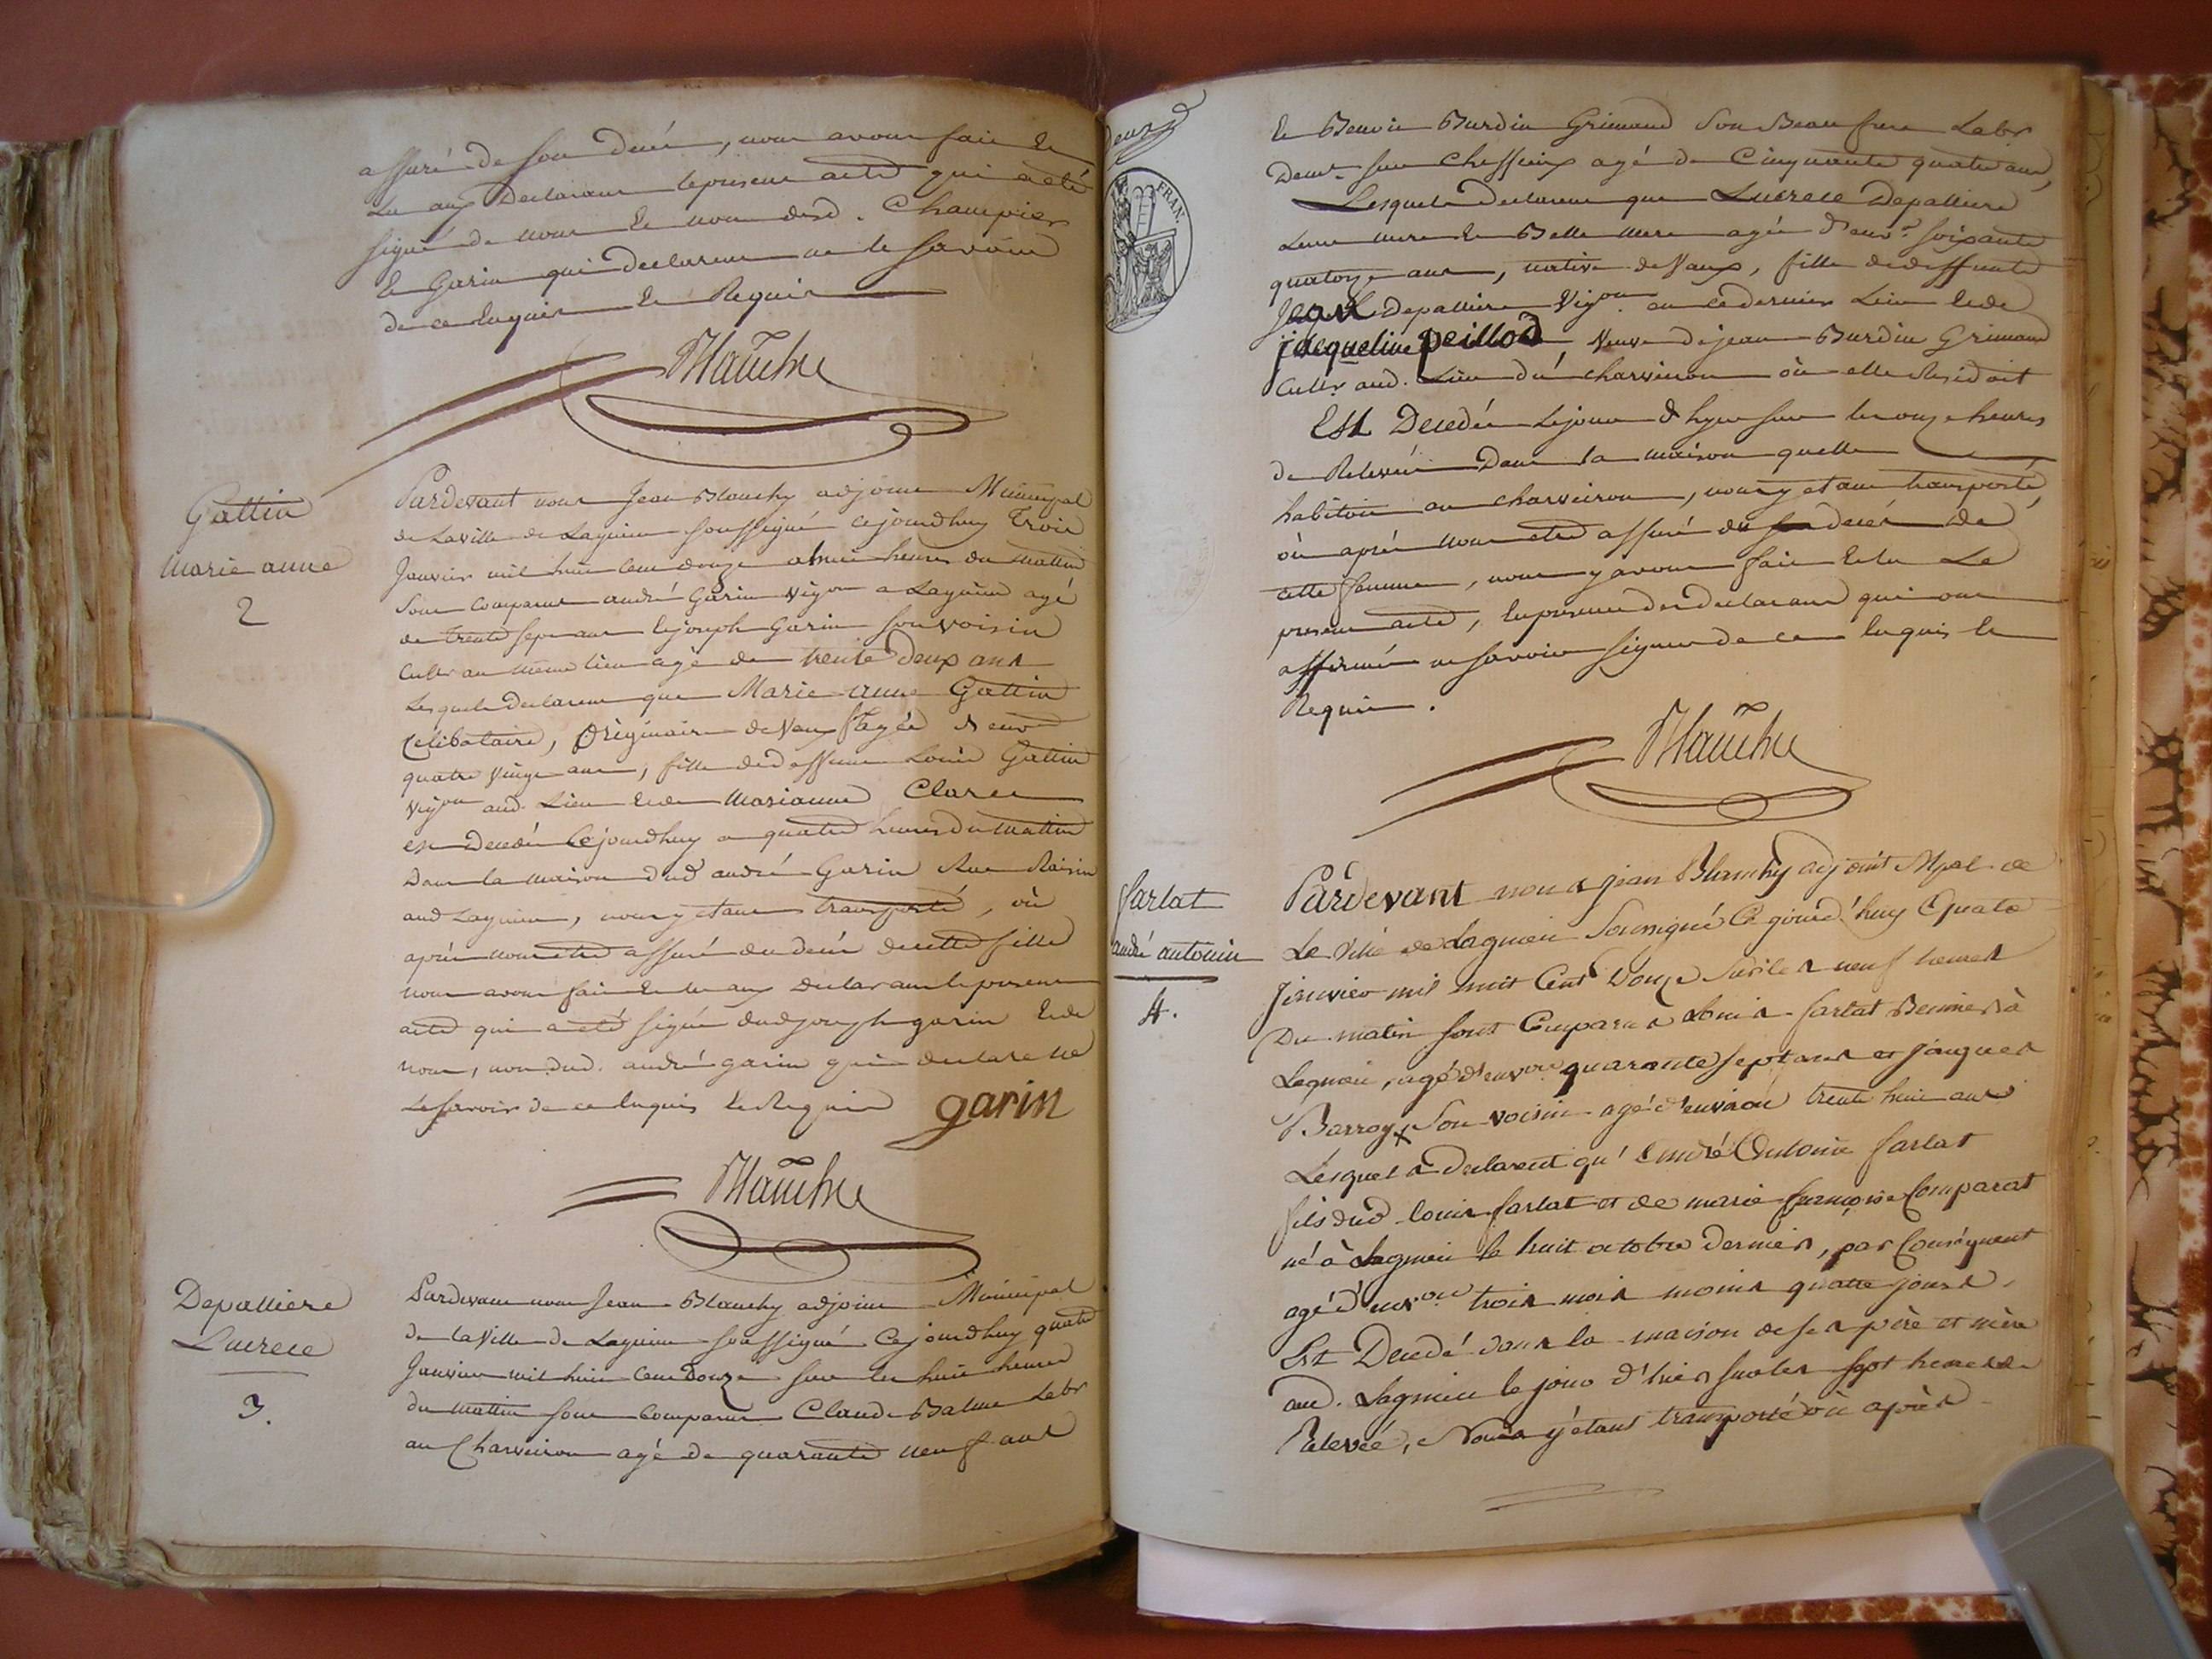 assuré de son décès, nous avons fait et
lu aux Declarans le present acte qui a été
signé de nous et non dud. Champier
et Garin qui declarent ne le savoir
de ce enquis et Requis
Blanchy
Gattin
Marie anne
2
Pardevant nous Jean Blanchy adjoint Municipal
de la ville de Lagnieu soussigné cejourdhuy Trois
Janvier mil huit cent douze a huit heures du mattin
Sont comparus andré Garin Vigon a Lagnieu agé
de trente sept ans et joseph Garin son voisin
Cultr au même lieu agé de trente deux ans
Lesquels declarent que Marie anne Gattin
Celibataire, Originaire de Vaux agée d'env
quatre vingt ans, fille de deffunt Louis Gattin
Vigon aud. Lieu et de Marianne Claree
est Decedée Cejourdhuy a quatre heures du mattin
Dans la maison dud andré Garin Rue Raisin
aud Lagnieu, nous y etant transporté, où
après nous etre assuré du décès de cette fille
nous avons fait et lu aux declarans le present
acte qui a été signé dud joseph garin et de
nous, non dud. andré garin qui declare ne
Le savoir de ce enquis et Requis garin
Blanchy
Depalliere
Lucrece
3.
Pardevant nous Jean Blanchy adjoint Municipal
de la Ville de Lagnieu soussigné Cejourdhuy quatre
Janvier mil huit cent Douze sur les huit heures
du mattin sont comparus Claude Balme Labr
au Charveiron agé de quarante neuf ans
deux
FRAN.
et Benoit Burdin Grimaud Son Beau frere Labr
Demt sur Chessieux agé de Cinquante quatre ans,
Lesquels declarent que Lucrece Depalliere
Leur mere et Belle mere agée d'envn soixante
quatorze ans, native de Vaux, fille de deffunts
Depalliere Vigon au ce dernier Lieu et de
jacqueline peillod Veuve de jean Burdin Grimaud
Cultr aud. Lieu du charveiron où elle Residoit
Est Decedée Le jour d'hyer sur les onze heures
de Relevée Dans la maison quelle
habitoit au charveiron, nous y etant transporté,
où aprés nous etre assuré du décés de
cette femme, nous y avons fait et lu Le
present acte, en presence des declarans qui ont
affirmé ne savoir signer de ce enquis et
Requis.
Blanchy
farlat
andré antoine
4.
Pardevant nous jean Blanchy adjoint Mpal de
La Ville de Lagnieu Soussigné Ce jourd'huy Quatre
janvier mil huit Cent Douze sur les neuf heures
Du matin sont Comparus Louis farlat à
Lagnieu, agé d'environ quarante sept ans et jacques
Barroy Son voisin agé d'environ trente huit ans
Lesquels declarent qu'André Antoine farlat
fils dud. louis farlat et de marie françoise Comparat
né à Lagnieu le huit octobre dernier, par Conséquent
agé d'environ trois mois moins quatre jours
Est Decedé dans la maison de ses père et mère
aud. Lagnieu le jour d'hier sur les sept heures de
Relevée, Nous y étant transporté où après